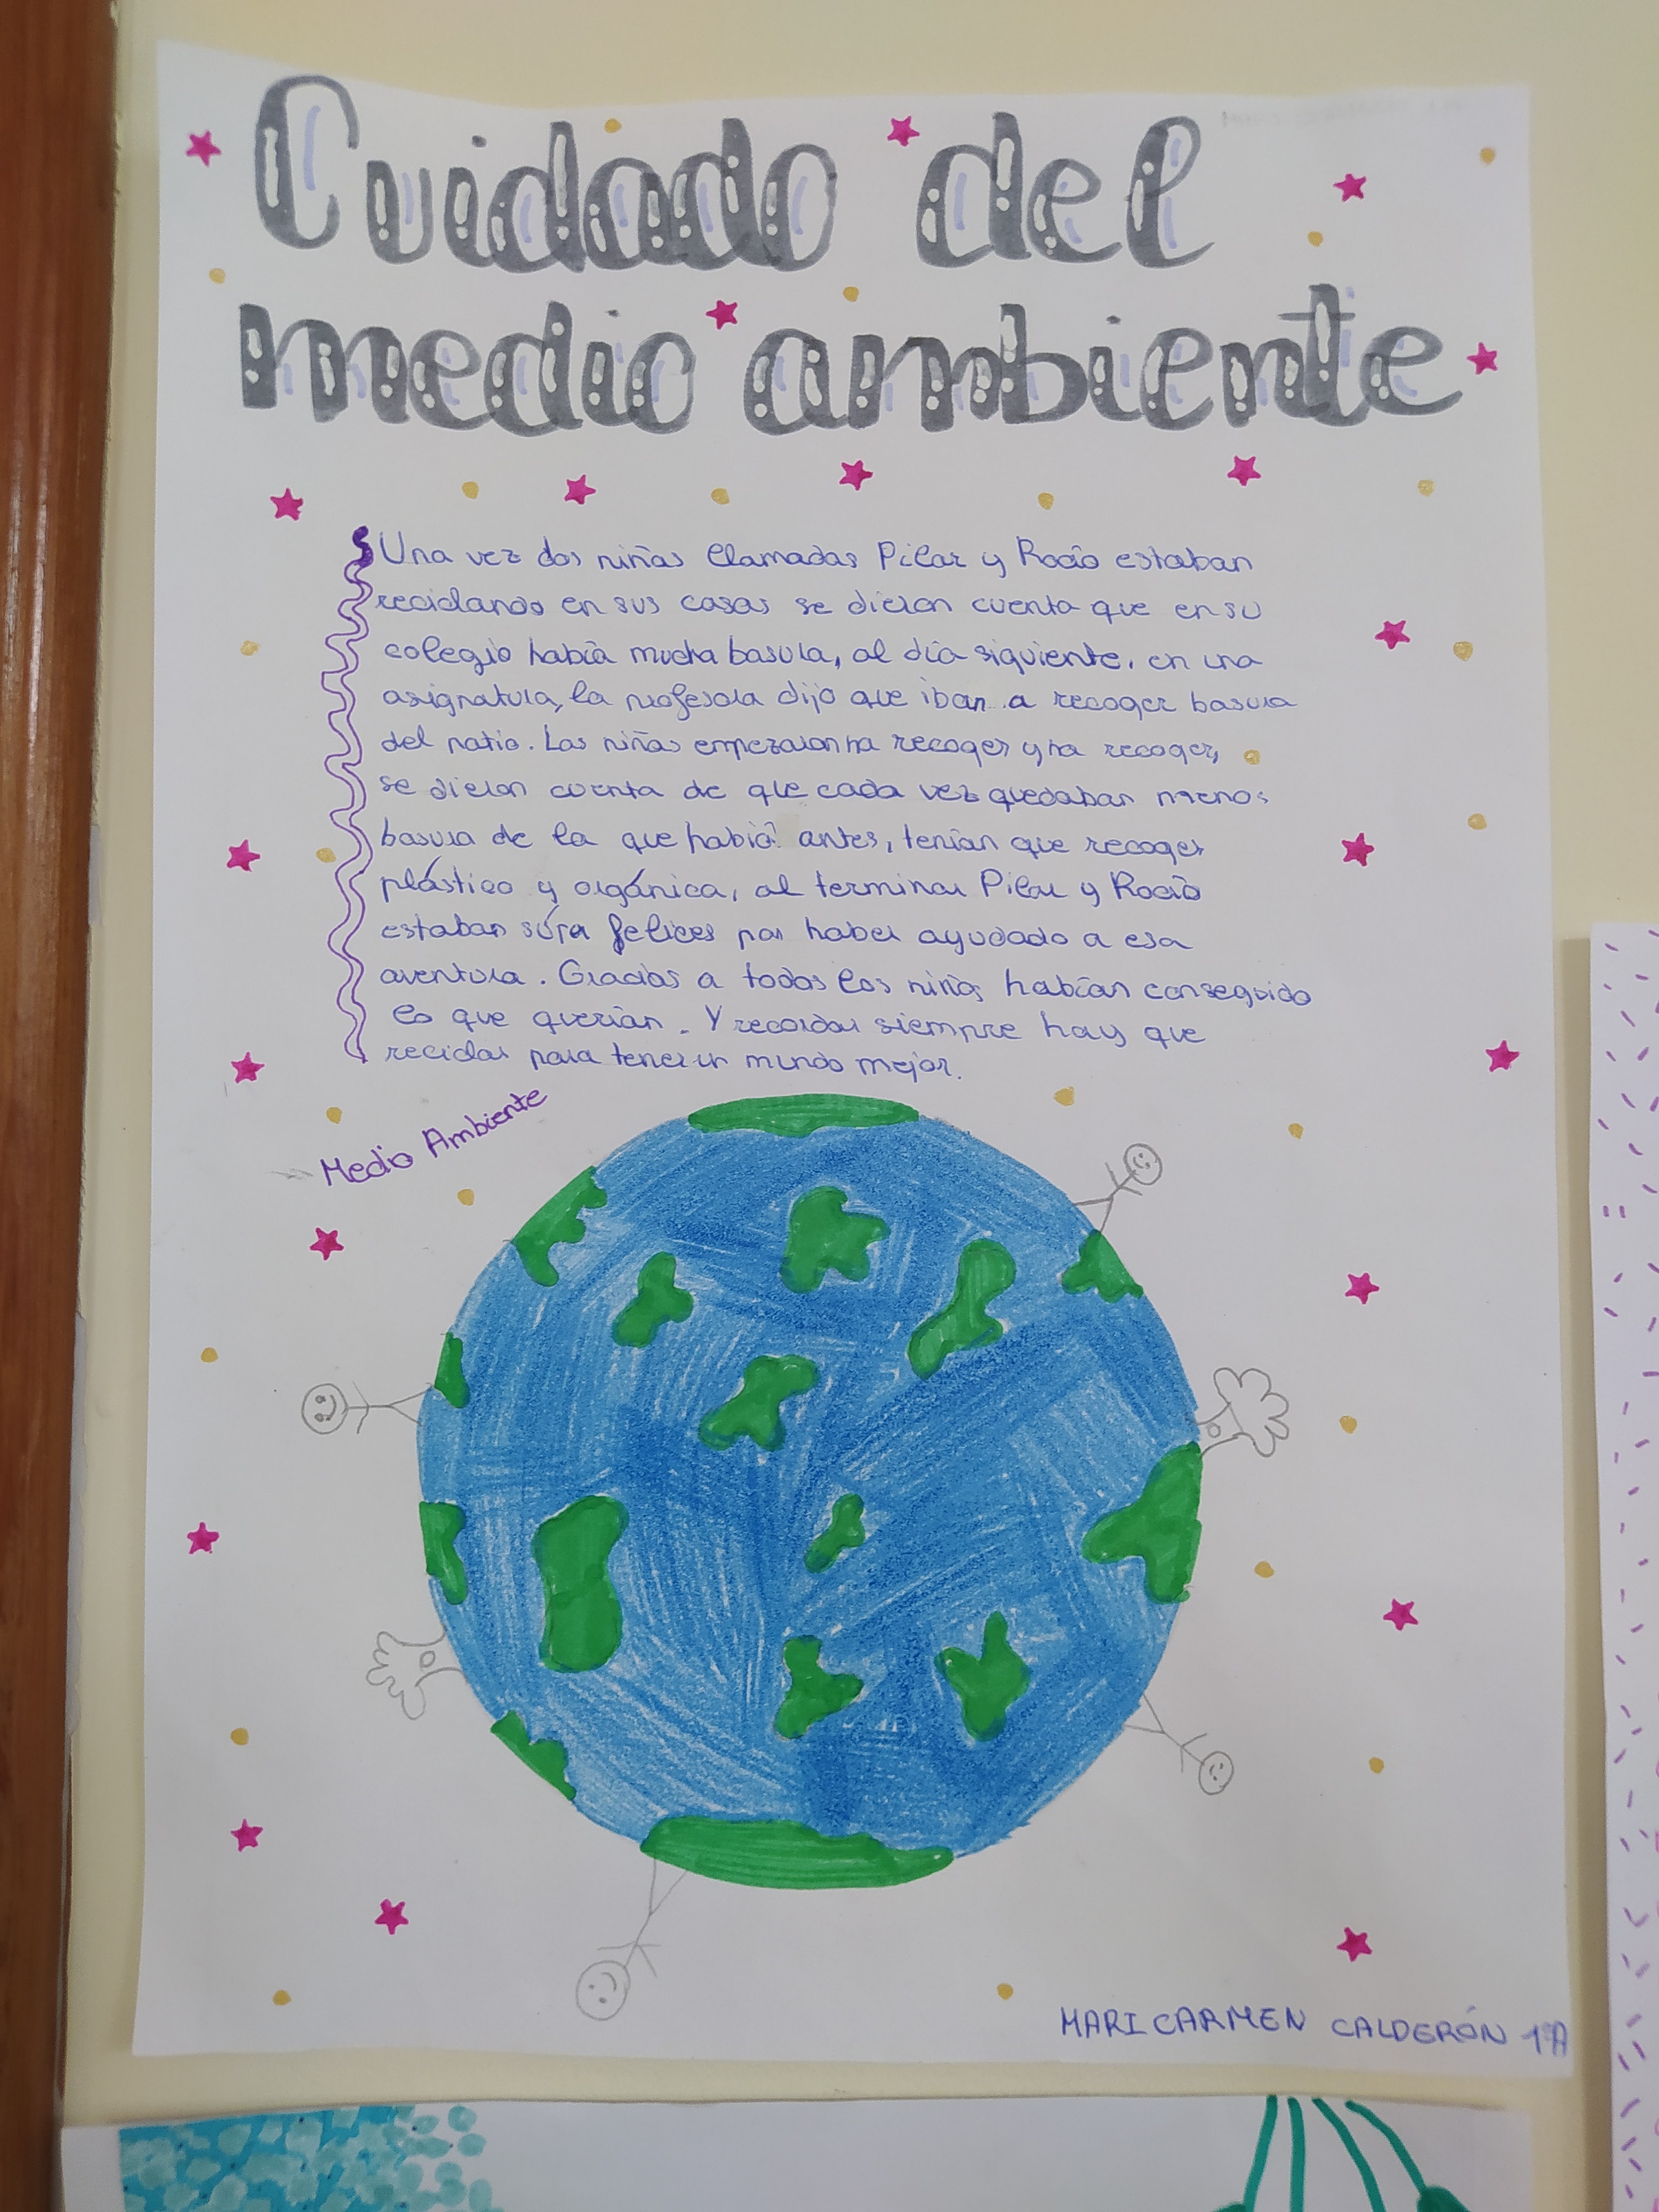 Cuidado del
medio ambiente
Una vez dos niñas llamadas Pilar y Rocío estaban
reciclando en sus casas se dieron cuenta que en su
colegio había mucha basura, al día siguiente, en una
asignatura, la profesora dijo que iban a recoger basura
del patio. Las niñas empezaron ha recoger y ha recoger,
se dieron cuenta de que cada vez quedaban menos
basura de la que había antes, tenían que recoger
plástico y orgánica, al terminar Pilar y Rocío
estaban súper felices por haber ayudado a esa
aventura. Gracias a todos los niños habían conseguido
lo que querían. Y recordar siempre hay que
reciclar para tener un mundo mejor.
Medio Ambiente
MARI CARMEN CALDERÓN 1ºA